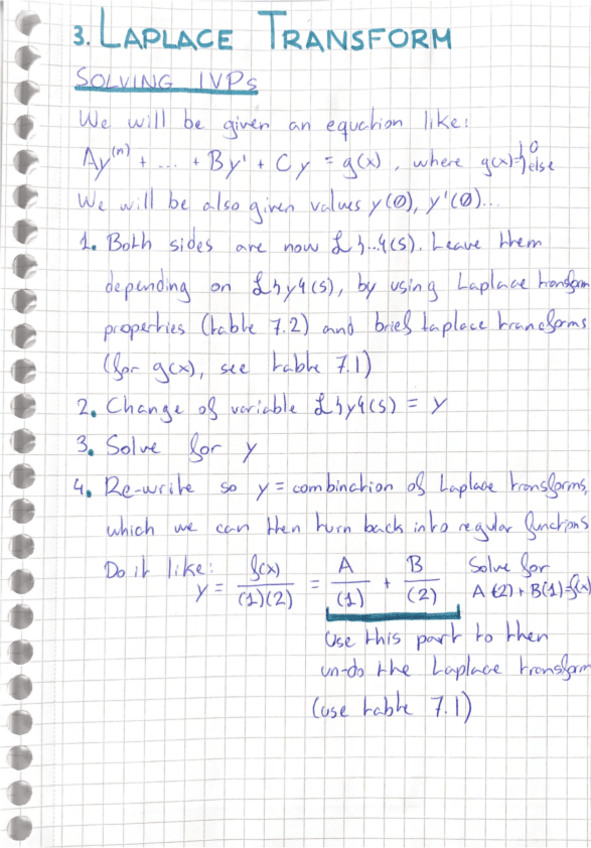 3. LAPLACE TRANSFORM
SOLVING IVPs
We will be given an equation like:
Ay⁽ⁿ⁾ + ... + By' + Cy = g(x), where g(x)={0 else
We will be also given values y(0), y'(0)...
1. Both sides are now ℒ{...}(s). Leave them
depending on ℒ{y}(s), by using Laplace transform
properties (table 7.2) and brief Laplace transforms
(for g(x), see table 7.1)
2. Change of variable ℒ{y}(s) = y
3. Solve for y
4. Re-write so y = combination of Laplace transforms,
which we can then turn back into regular functions
Do it like: y = f(x)/(1)(2) = A/(1) + B/(2) Solve for
A(2) + B(1) = f(x)
Use this part to then
un-do the Laplace transform
(use table 7.1)